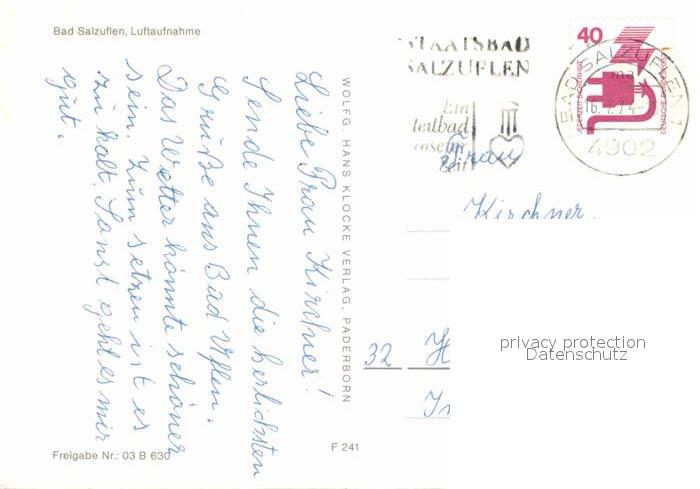 Bad Salzuflen, Luftaufnahme
Liebe Frau Kirchner!
Sende Ihnen die herlichsten
Grüße aus Bad Uflen.
Das Wetter könnte schöner
sein. Zum setzen ist es
zu kalt. Sonst geht es mir
gut.
WOLFG. HANS KLOCKE VERLAG, PADERBORN
STAATSBAD
SALZUFLEN
Ein
Heilbad
unserer
Zeit
40
JEDERZEIT SICHERHEIT
DEUTSCHE BUNDESPOST
BAD SALZUFLEN 1
4902
Frau
Kirchner
32 H
privacy protection
Datenschutz
Freigabe Nr.: 03 B 630
F 241